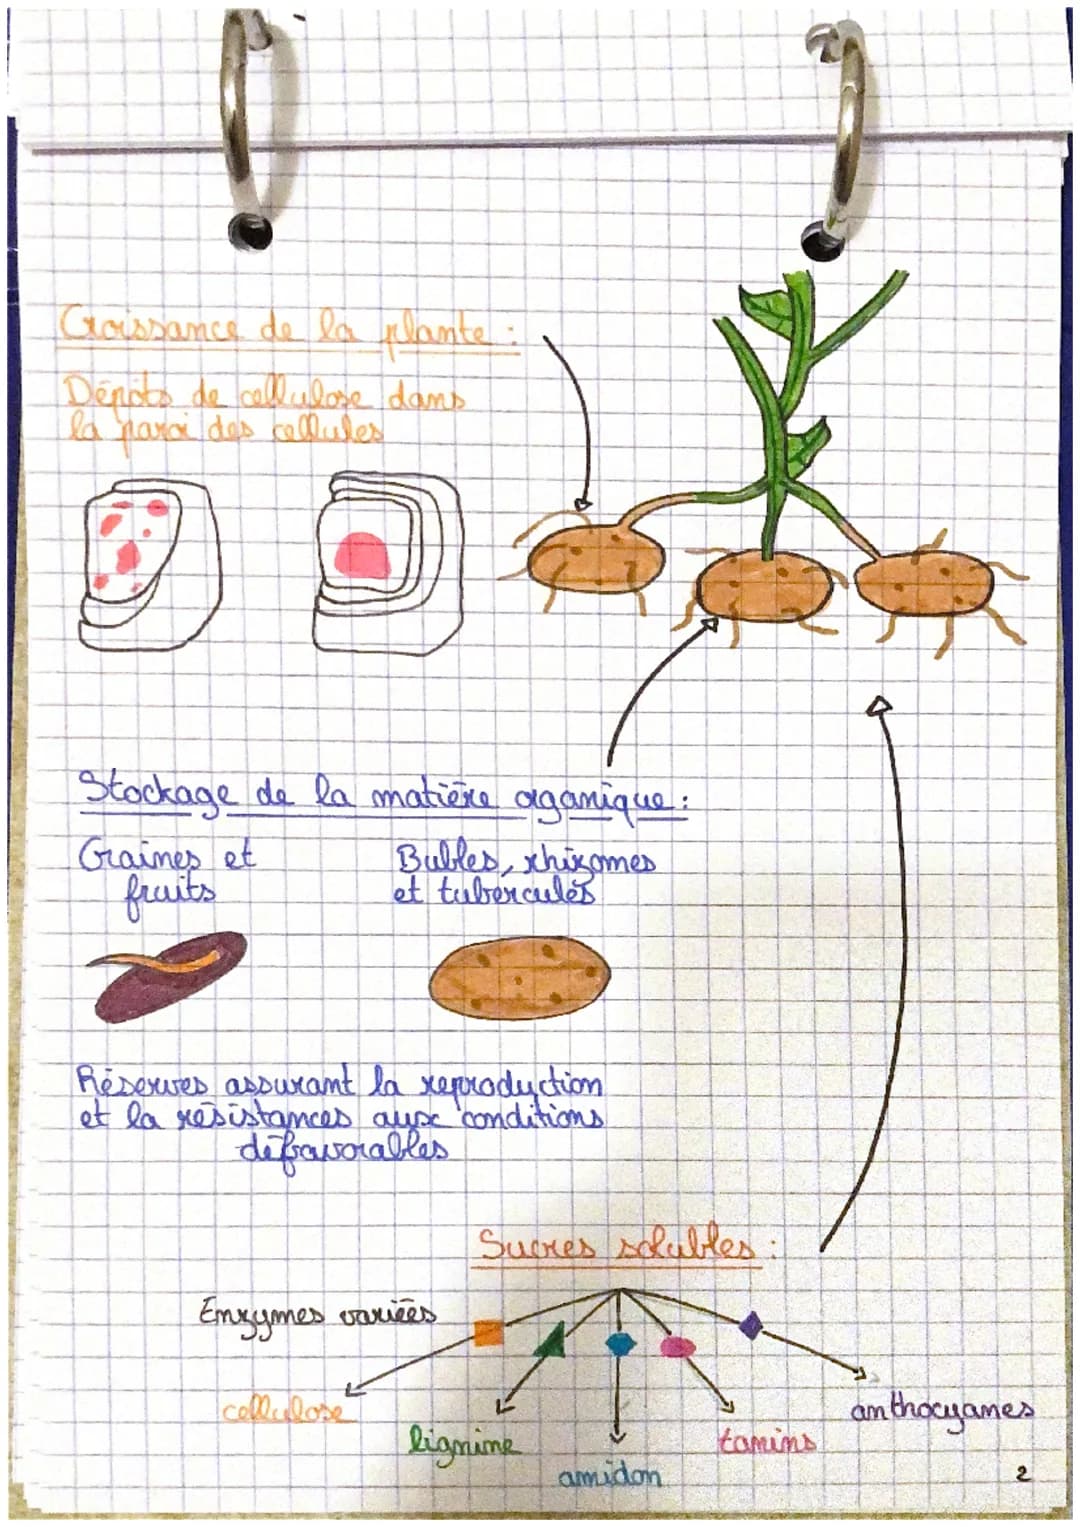 Croissance de la plante :
Dépôts de cellulose dans
la paroi des cellules
Stockage de la matière organique :
Graines et
fruits
Bubles, rhizomes
et tubercules
Réserves assurant la reproduction
et la résistances aux conditions
défavorables
Sucres solubles :
Enzymes variées
cellulose
lignine
amidon
tanins
anthocyanes
2